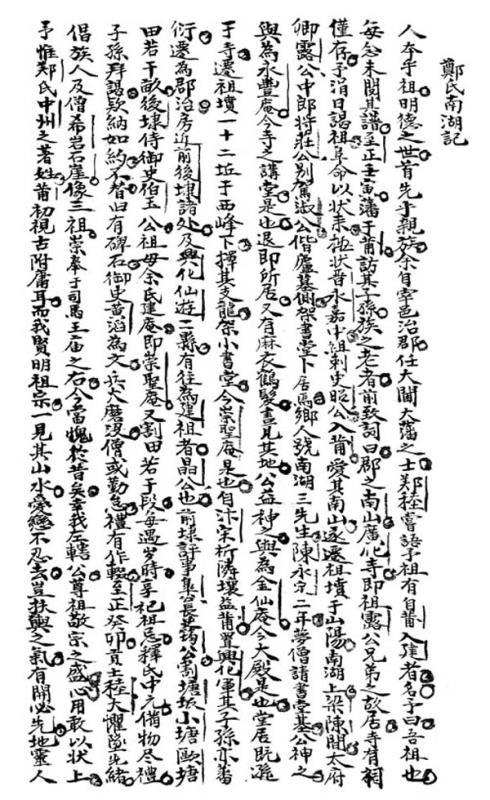 鄭氏南湖記
人本乎祖明德之世首先于親族余自宰邑治郡任大閫大藩之士鄭穜嘗語予祖有自莆入建者名予曰吾祖也
每念未閱其譜至正壬寅藩于莆訪其子孫族之老者前致詞曰郡之南山廣化寺即祖露公兄弟之故居寺有祠
僅存予涓日謁祖皐命以狀來極狀晉永嘉中祖刺史昭公入莆愛其南山遂遷祖墳于山陽南湖上梁陳間太府
卿露公中郎將莊公別駕淑公偕廬墓側架書堂下居焉鄉人號南湖三先生陳永定二年夢僧請書堂基公神之
與為永豐庵今寺之講堂是也退即所居又有麻衣鶴髮晝見其地公益神之與為金仙庵今大殿是也堂居既遜
于寺遷祖墳一十二坵于西峰下擇其支龍架小書堂今崇聖庵是也自汴宋析隣壤益莆置興化軍其子孫亦蕃
衍遷為郡治房近前後埭諸处及興化仙遊二縣有往為建祖者晶公也前埭評事集公長史筠公割塘坂小塘歐塘
田若干畝後埭侍御史伯玉公祖母余氏建庵即崇聖庵又割田若干段每遇歲時享祀祖忌釋氏中元備物尽禮
子孫拜謁欵納如約不替旧有碑石御史黃滔為文兵火磨没僧或勤怠禮有作輟至正癸卯貢士穜大懼墜先緒
倡族人及僧希岩石崖像三祖崇奉于司馬王庙之右今當愧於昔矣幸我左轄公尊祖敬宗之盛心用敢以狀上
予惟鄭氏中州之著姓莆初視古附庸耳而我賢明祖宗一見其山水愛戀不忍去豈扶輿之氣有開必先地靈人